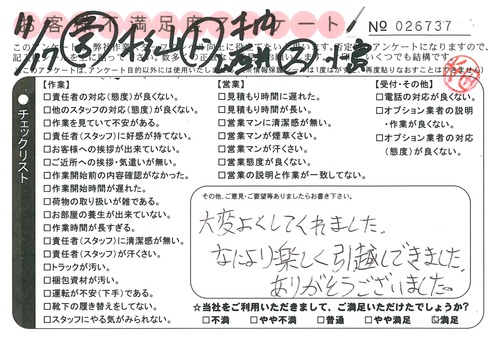 お客様不満足度アンケート!
No 026737
4/17
【作業】
□責任者の対応(態度)が良くない。
□他のスタッフの対応(態度)が良くない。
□作業を見ていて不安がある。
□責任者(スタッフ)に好感が持てない。
□お客様への挨拶が出来ていない。
□ご近所への挨拶・気遣いが無い。
□作業開始前の内容確認がなかった。
□作業開始時間が遅れた。
□荷物の取り扱いが雑である。
□お部屋の養生が出来ていない。
□作業時間が長すぎる。
□責任者(スタッフ)に清潔感が無い。
□責任者(スタッフ)が汗くさい。
□トラックが汚い。
□梱包資材が汚い。
□運転が不安(下手)である。
□靴下の履き替えをしてない。
□スタッフにやる気がみられない。
【営業】
□見積もり時間に遅れた。
□見積もり時間が長い。
□営業マンに清潔感が無い。
□営業マンが煙草くさい。
□営業マンが汗くさい。
□営業態度が良くない。
□営業の説明と作業が一致してない。
【受付・その他】
□電話の対応が良くない。
□オプション業者の説明
・作業が良くない。
□オプション業者の対応
(態度)が良くない。
●チェックリスト
その他、ご意見・ご要望等ありましたらお書き下さい。
大変よくしてくれました。
なにより楽しく引越しできました。
ありがとうございました。
☆当社をご利用いただきまして、ご満足いただけたでしょうか?
□不満 □やや不満 □普通 □やや満足 ☑満足